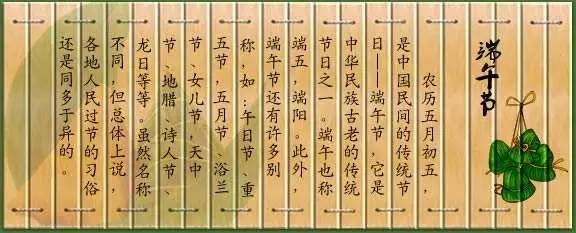 端午节
农历五月初五，
是中国民间的传统节
日——端午节，它是
中华民族古老的传统
节日之一。端午也称
端五，端阳。此外，
端午节还有许多别
称，如：午日节、重
五节，五月节、浴兰
节、女儿节，天中
节、地腊、诗人节、
龙日等等。虽然名称
不同，但总体上说，
各地人民过节的习俗
还是同多于异的。